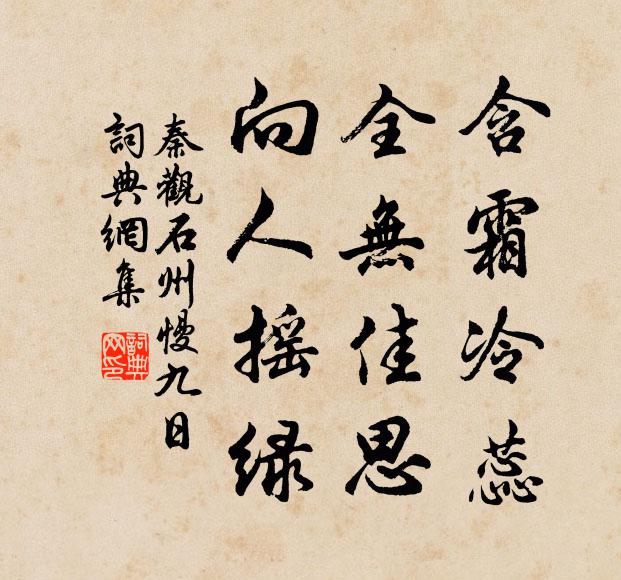 含霜冷蕊
全無佳思
向人摇緑
秦觀石州慢九日
詞典網集
詞典
网印